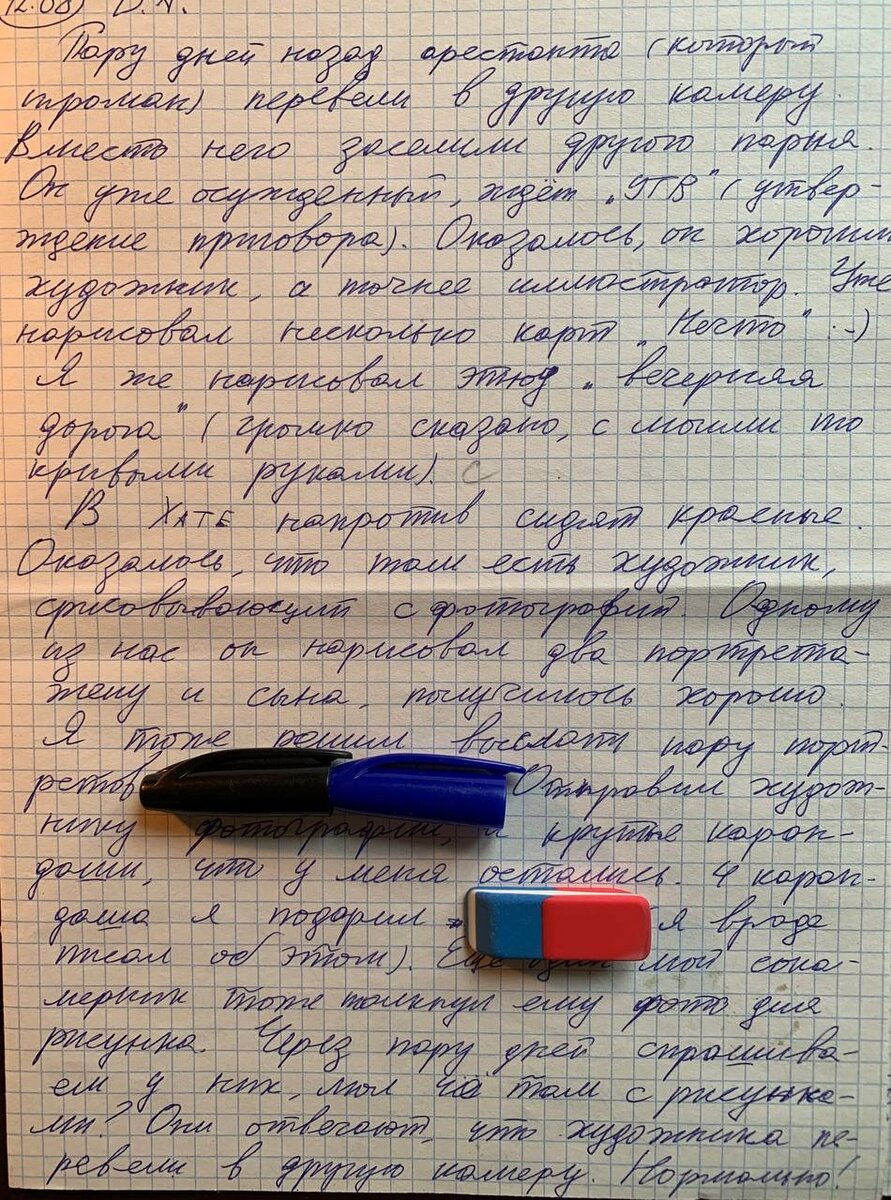 12.08)
Пару дней назад арестанта (который
троман) перевели в другую камеру.
Вместо него заселили другого парня.
Он уже осужденный, ждёт „УПВ" (утвер-
ждение приговора). Оказалось, он хороший
художник, а точнее иллюстратор. Уже
нарисовал несколько карт „Нечто" :-)
Я же нарисовал этюд „вечерняя
дорога" (громко сказано, с моими то
кривыми руками).
В ХАТЕ напротив сидят красные.
Оказалось, что там есть художник,
срисовывающий с фотографий. Одному
из нас он нарисовал два портрета-
жену и сына, получилось хорошо.
Я тоже решил выслать пару порт-
ретов Отправил худож-
нику фотографии, и крутые каран-
даши, что у меня остались. 4 каран-
даша я подарил я вроде
писал об этом). Ещё один мой сока-
мерник тоже толкнул ему фото для
рисунка. Через пару дней спрашива-
ем у них, мол чё там с рисунка-
ми? Они отвечают, что художника пе-
ревели в другую камеру. Нормально!